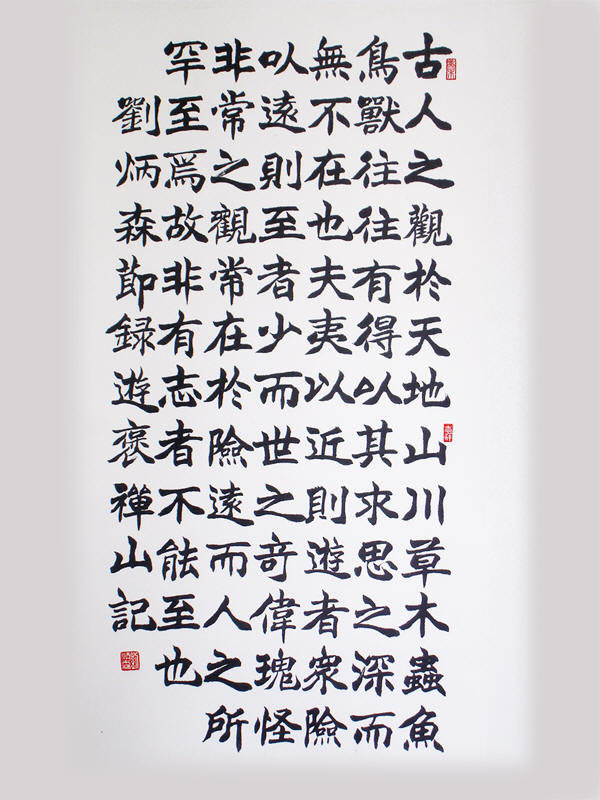 古人之觀於天地山川草木蟲魚
鳥獸往往有得以其求思之深而
無不在也夫夷以近則遊者衆險
以遠則至者少而世之奇偉瑰怪
非常之觀常在於險遠而人之所
罕至焉故非有志者不能至也
劉炳森節録遊褒禪山記